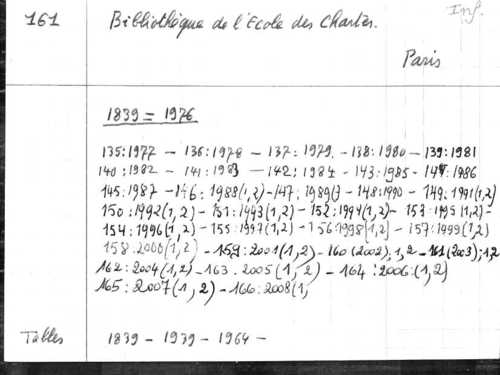 161 Bibliothèque de l'Ecole des Chartes. Inf.
Paris
1839 = 1976
135:1977 - 136:1978 - 137:1979. - 138:1980 - 139:1981
140:1982 - 141:1983 - 142:1984 - 143:1985 - 144:1986
145:1987 - 146:1988(1,2) - 147:1989() - 148:1990 - 149:1991(1,2)
150:1992(1,2) - 151:1993(1,2) - 152:1994(1,2) - 153:1995(1,2) -
154:1996(1,2) - 155:1997(1,2) - 156:1998(1,2) - 157:1999(1,2)
158:2000(1,2) - 159:2001(1,2) - 160(2002);1,2 - 161(2003);1,2
162:2004(1,2) - 163:2005(1,2) - 164:2006:(1,2)
165:2007(1,2) - 166:2008(1,
Tables 1839 - 1939 - 1964 -